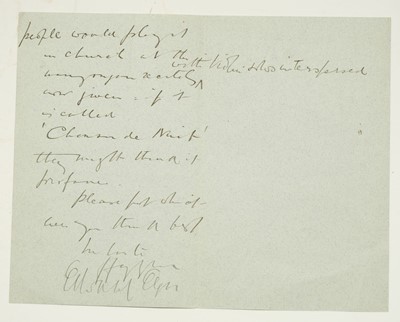 people would play it
in church at the
with violin solos interspersed
many organ recitals
now given: if it
is called
'Chanson de Nuit'
they might think it
profane.
Please put what
ever you think best
In haste
Yrs
Edward Elgar